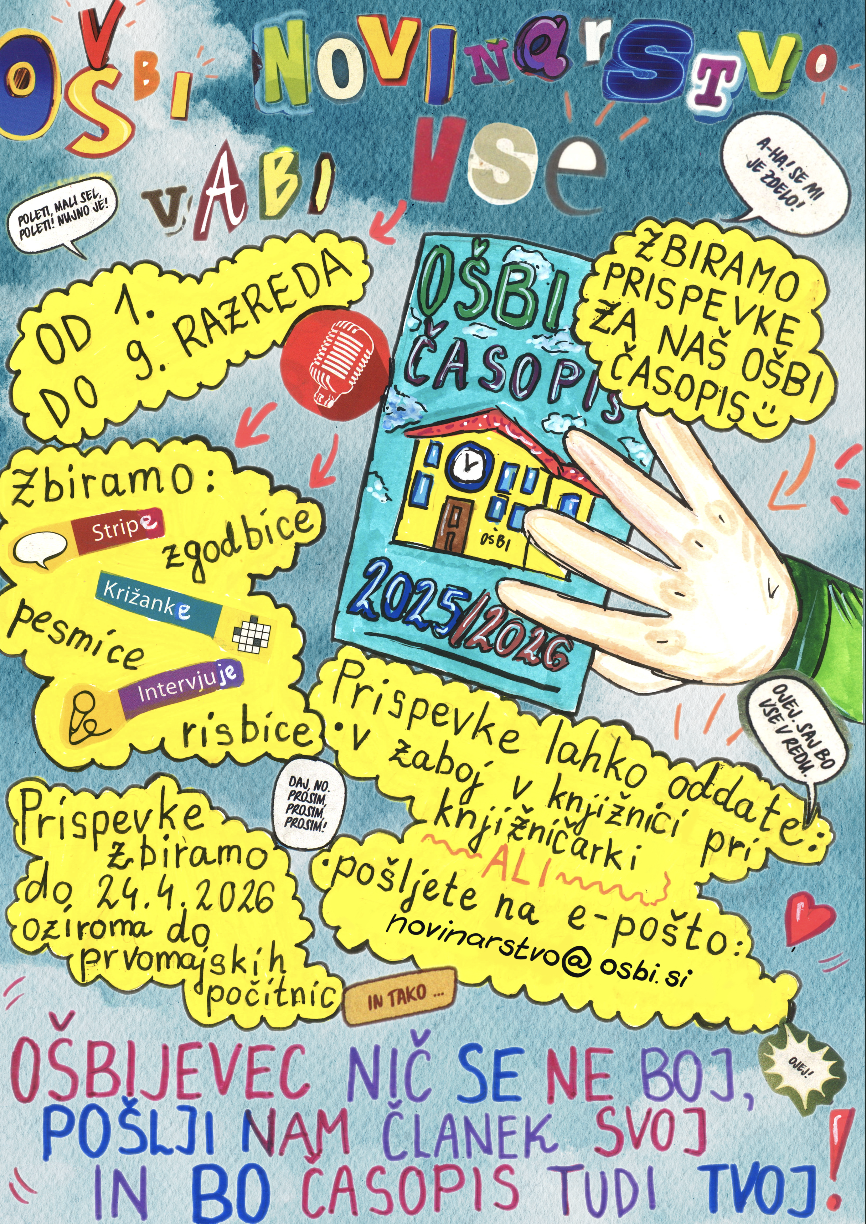 OŠBI NOVINARSTVO
VABI VSE
POLETI, MALI SEL,
POLETI! NUJNO JE!
A-HA! SE MI
JE ZDELO!
OD 1.
DO 9. RAZREDA
OŠBI
ČASOPIS
OŠBI
2025/2026
ZBIRAMO
PRISPEVKE
ZA NAŠ OŠBI
ČASOPIS
Zbiramo:
Stripe
zgodbice
Križanke
pesmice
Intervjuje
risbice
OJEJ. SAJ BO
VSE V REDU.
Prispevke lahko oddate:
• v zaboj v knjižnici pri
knjižničarki
ALI
• pošljete na e-pošto:
novinarstvo@osbi.si
DAJ, NO.
PROSIM,
PROSIM,
PROSIM!
Prispevke
zbiramo
do 24.4.2026
oziroma do
prvomajskih
počitnic
IN TAKO ...
OJEJ!
OŠBIJEVEC NIČ SE NE BOJ,
POŠLJI NAM ČLANEK SVOJ
IN BO ČASOPIS TUDI TVOJ!